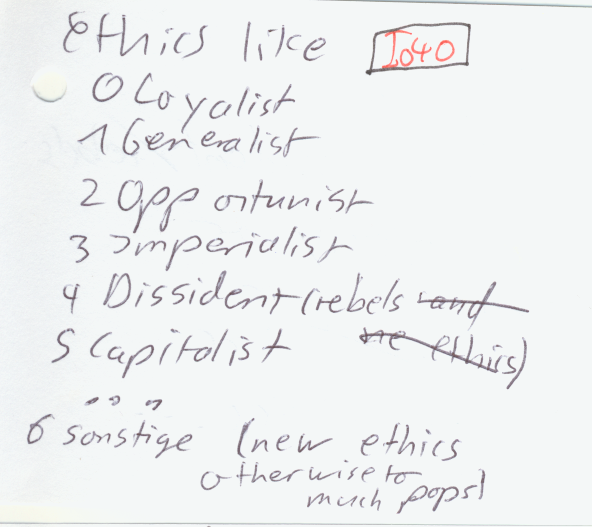 Ethics like Io40
0 Loyalist
1 Generalist
2 Opportunist
3 Imperialist
4 Dissident (rebels and
5 Capitalist ne ethics)
...
6 sonstige (new ethics
otherwise to
much pops)